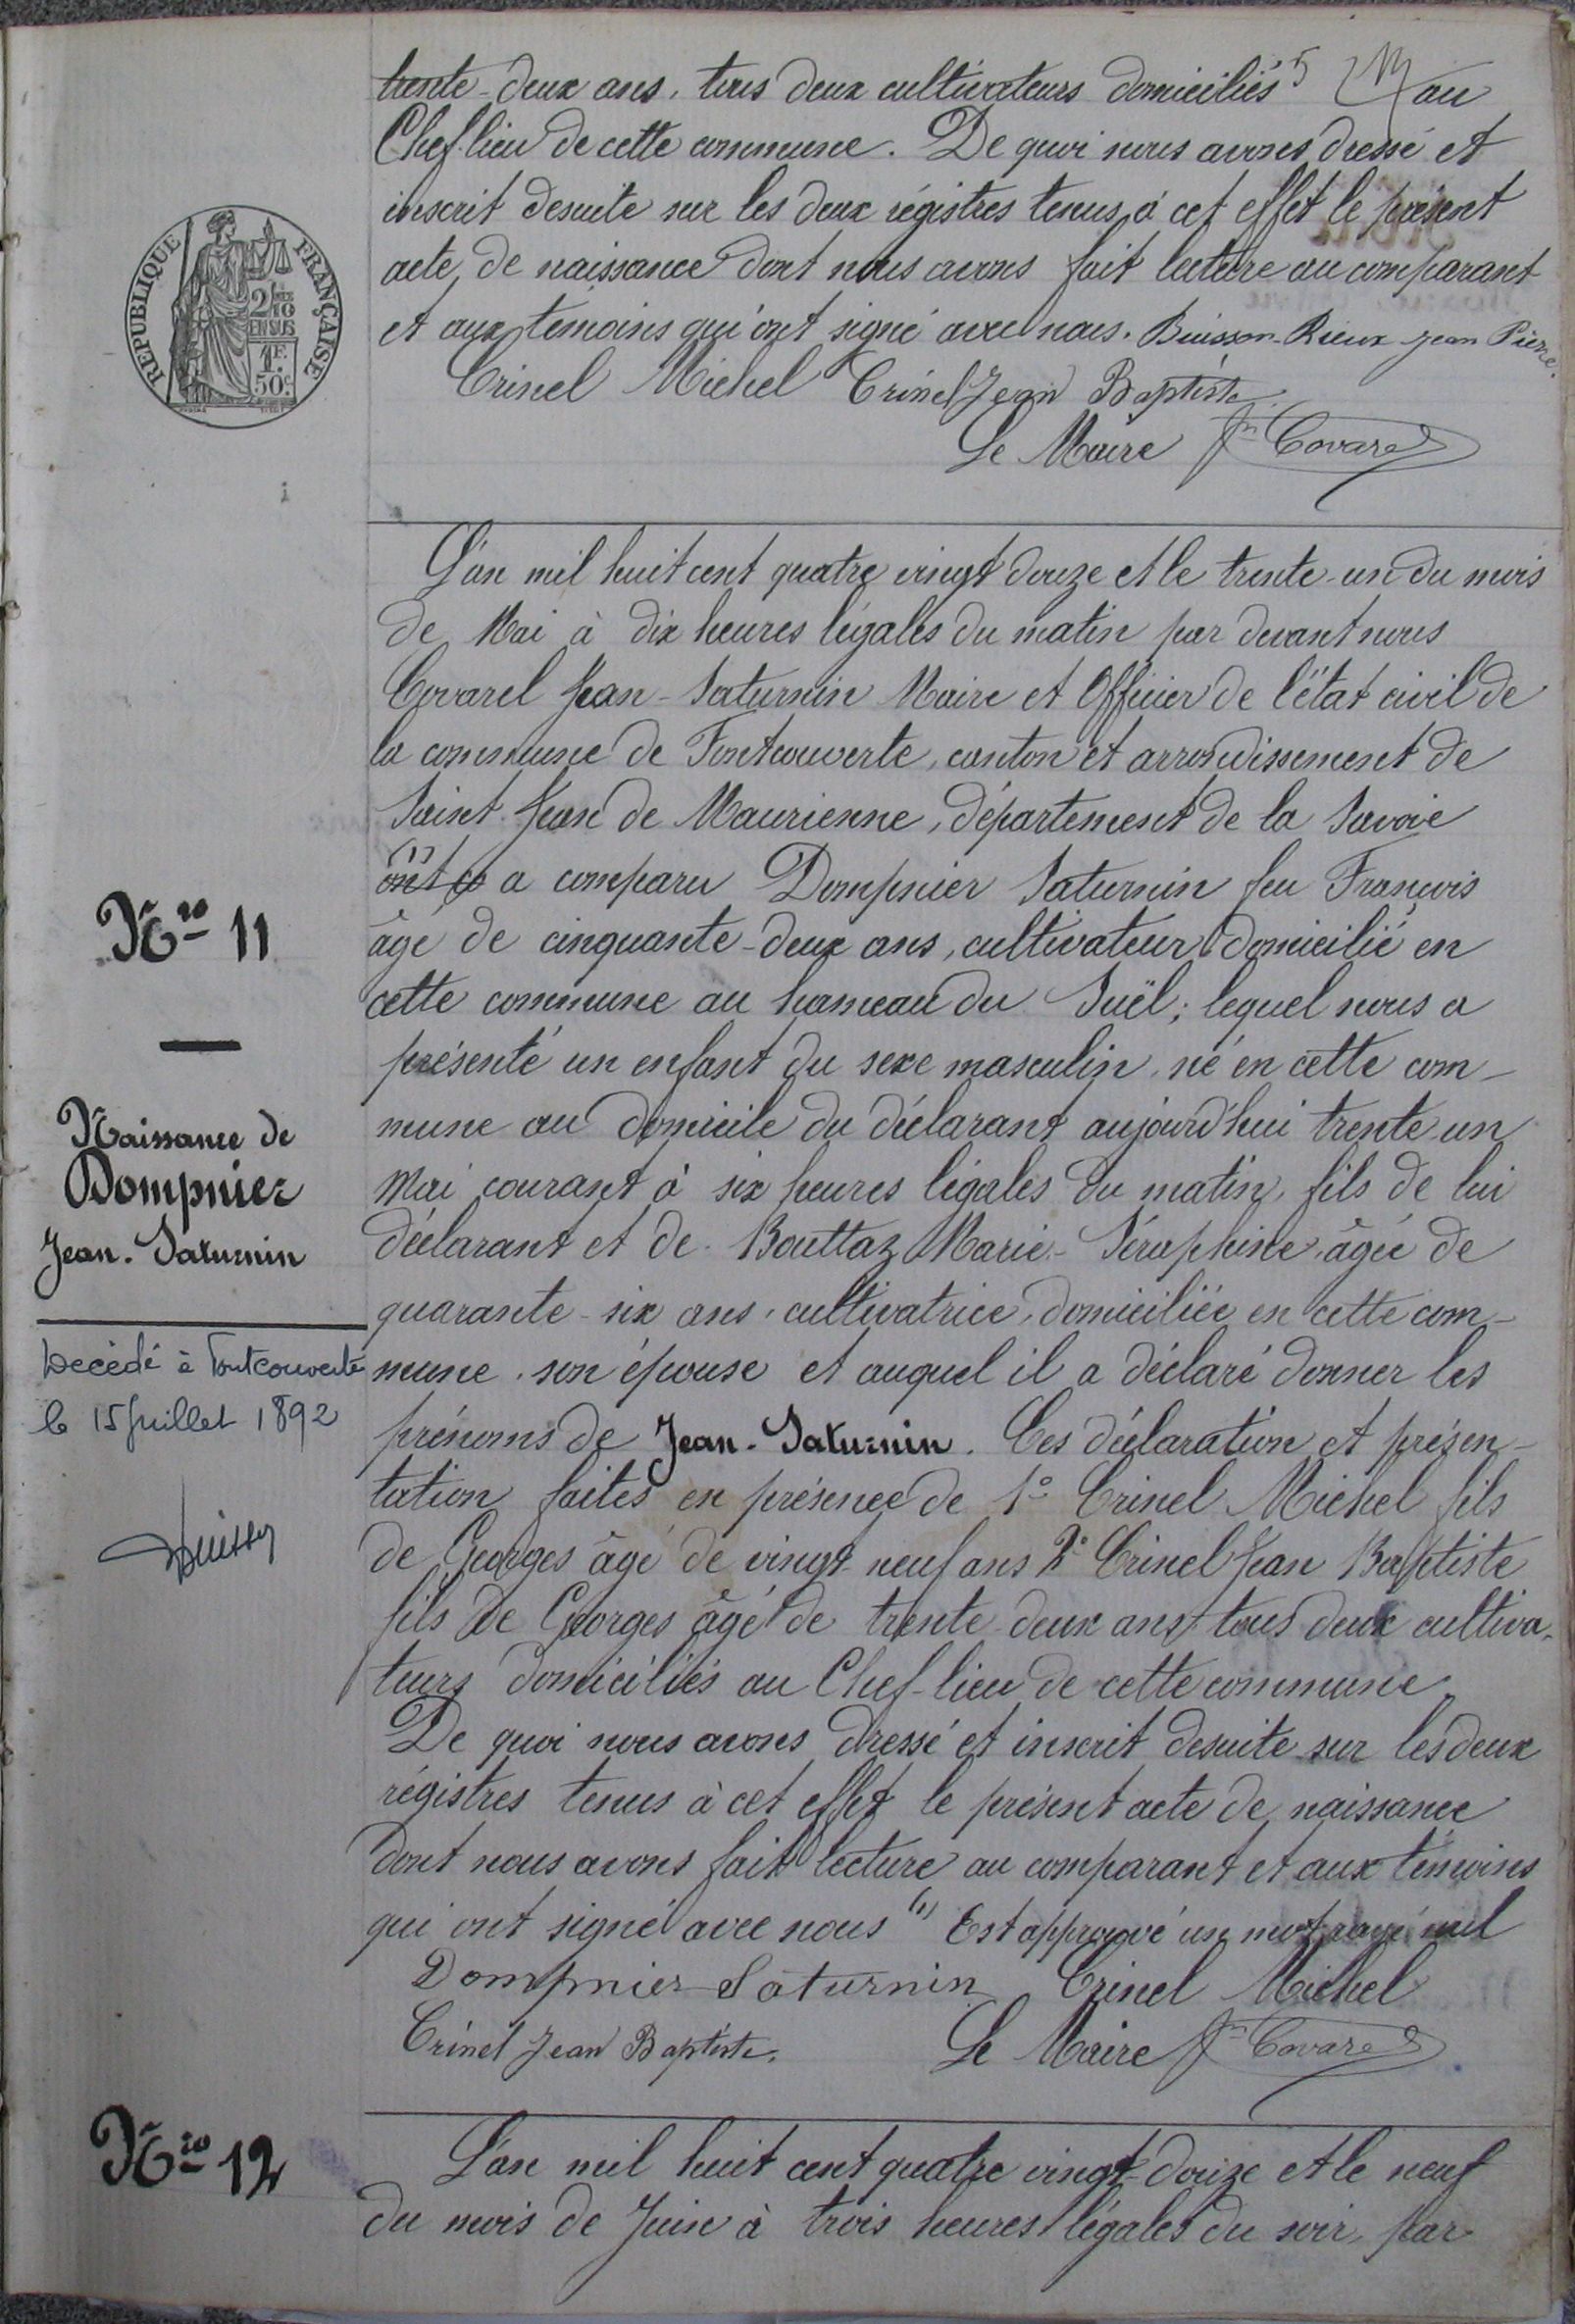 trente-deux ans, tous deux cultivateurs domiciliés 5 au
Chef-lieu de cette commune. De quoi nous avons dressé et
inscrit desuite sur les deux régistres tenus à cet effet le présent
acte de naissance dont nous avons fait lecture au comparant
et aux témoins qui ont signé avec nous. Buisson-Rieux Jean Pierre.
Crinel Michel Crinel Jean Baptiste
Le Maire Jn Covarel
RÉPUBLIQUE FRANÇAISE
2/10
EN SUS
1F.
50c.
L'an mil huit cent quatre vingt douze et le trente-un du mois
de Mai à dix heures légales du matin par devant nous
Covarel Jean-Saturnin Maire et Officier de l'état civil de
la commune de Fontcouverte, canton et arrondissement de
Saint-Jean de Maurienne, département de la Savoie
(1)
ont co a comparu Dompnier Saturnin feu François
âgé de cinquante-deux ans, cultivateur domicilié en
cette commune au hameau du Suël; lequel nous a
présenté un enfant du sexe masculin, né en cette com-
mune au domicile du déclarant aujourd'hui trente un
Mai courant à six heures légales du matin, fils de lui
déclarant et de Bouttaz Marie-Séraphine âgée de
quarante-six ans, cultivatrice, domiciliée en cette com-
mune, son épouse et auquel il a déclaré donner les
prénoms de Jean-Saturnin. Ces déclaration et présen-
tation faites en présence de 1° Crinel Michel fils
de Georges âgé de vingt-neuf ans 2° Crinel Jean Baptiste
fils de Georges âgé de trente-deux ans tous deux cultiva-
teurs domiciliés au Chef-lieu de cette commune
De quoi nous avons dressé et inscrit desuite sur les deux
régistres tenus à cet effet le présent acte de naissance
dont nous avons fait lecture au comparant et aux témoins
qui ont signé avec nous (1) Est approuvé un mot rayé nul
Dompnier Saturnin Crinel Michel
Crinel Jean Baptiste. Le Maire Jn Covarel
Nro 11
Naissance de
Dompnier
Jean-Saturnin
Décédé à Fontcouverte
le 15 Juillet 1892
Nro 12
L'an mil huit cent quatre vingt-douze et le neuf
du mois de Juin à trois heures légales du soir, par